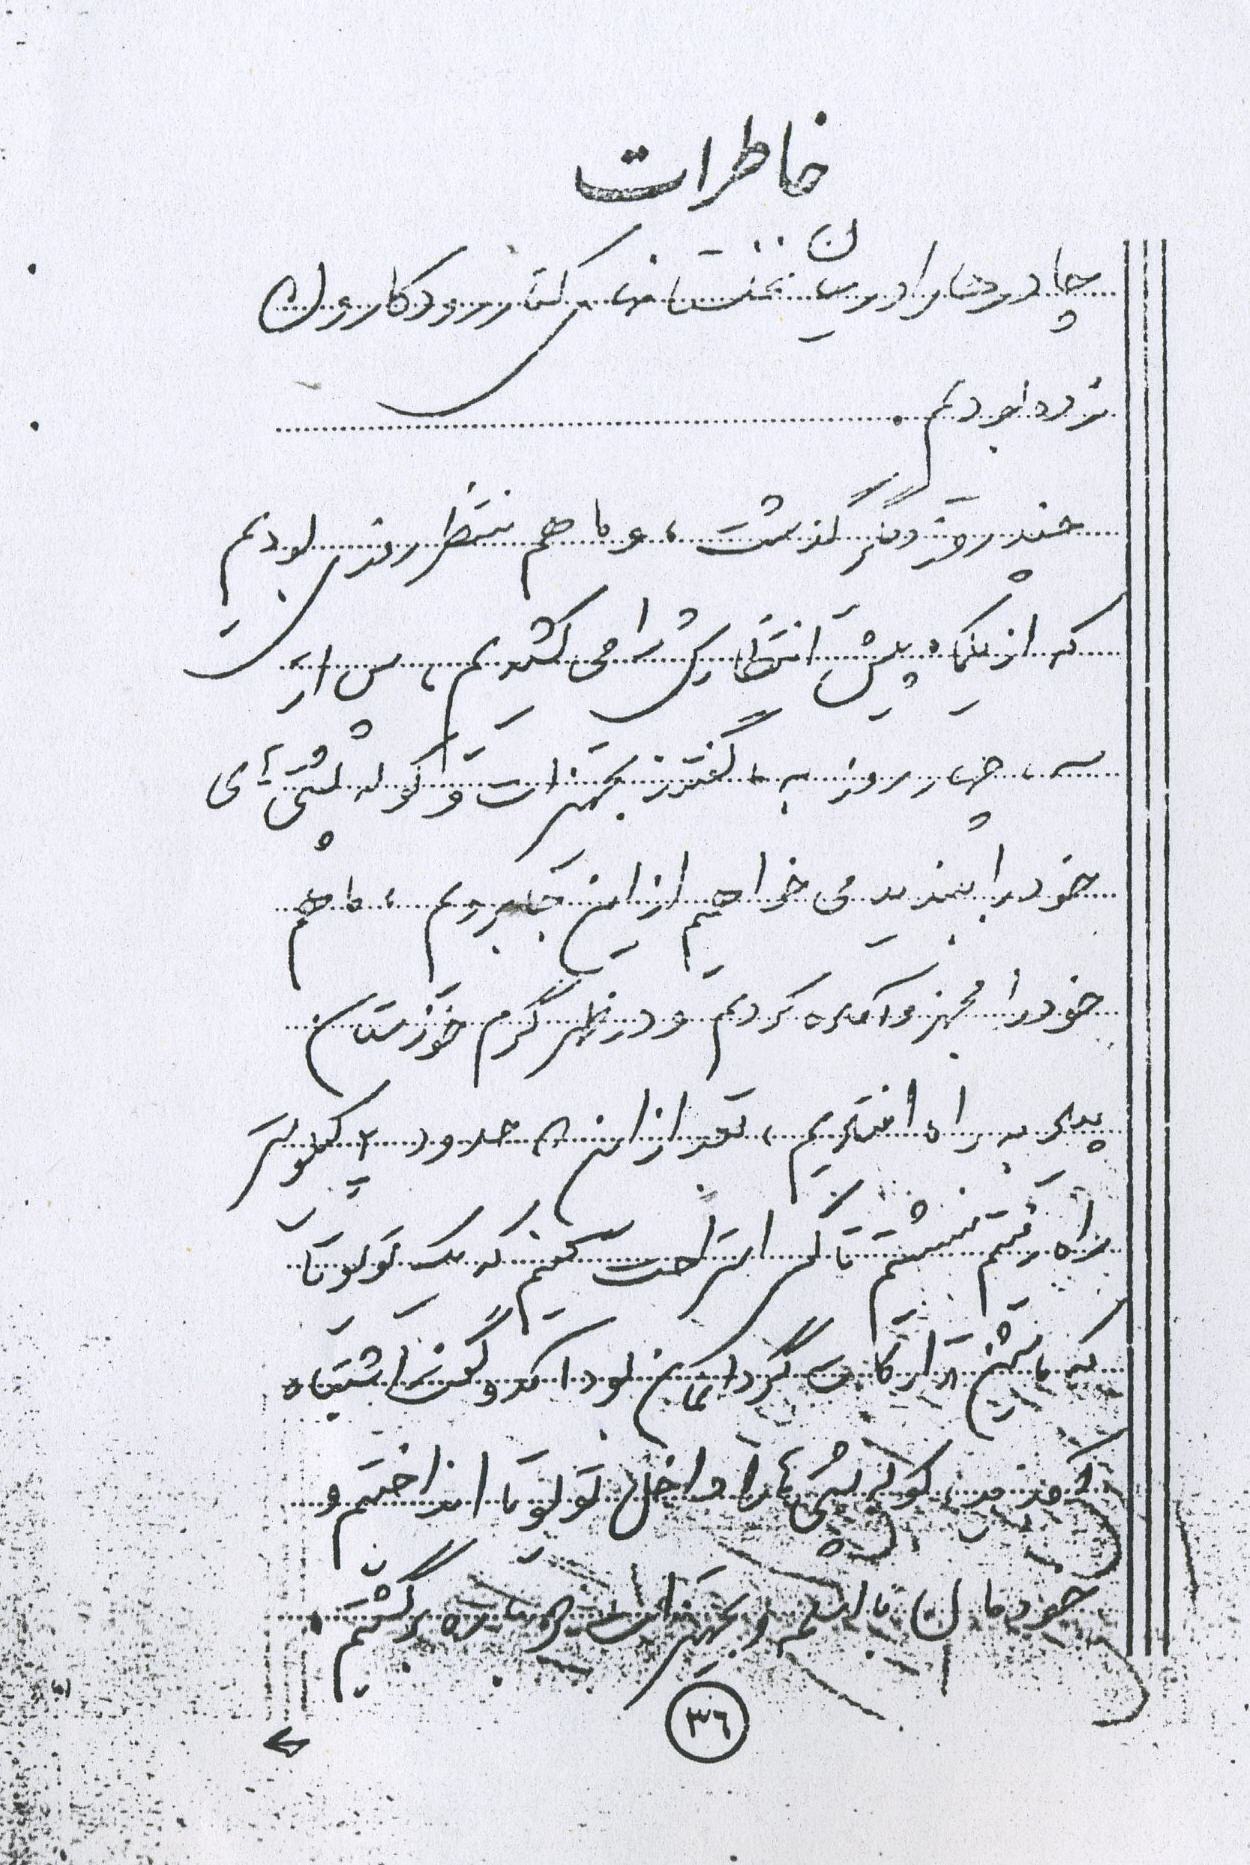 خاطرات
چادرها را در میان نخلستانهای کنار رود کارون
زده بودیم.
چند روز دیگر گذشت، و ما هم منتظر روزی بودیم
که از یکماه پیش انتظارش را می کشیدیم، پس از
سه، چهار روز به ما گفتند تجهیزات و کوله پشتی های
خود را ببندید می خواهیم از این جا برویم، ما هم
خود را مجهز و آماده کردیم و در ظهر گرم خوزستان
پیاده به راه افتادیم، بعد از اینکه حدود ۲ کیلومتر
راه رفتیم نشستیم تا کمی استراحت کنیم که یک تویوتا
که ماشین تدارکات گردانمان بود آمد و گفت اشتباه
کوله پشتی ها را داخل تویوتا انداختیم و
خودمان با اسلحه و تجهیزات پیاده برگشتیم.
۳۶